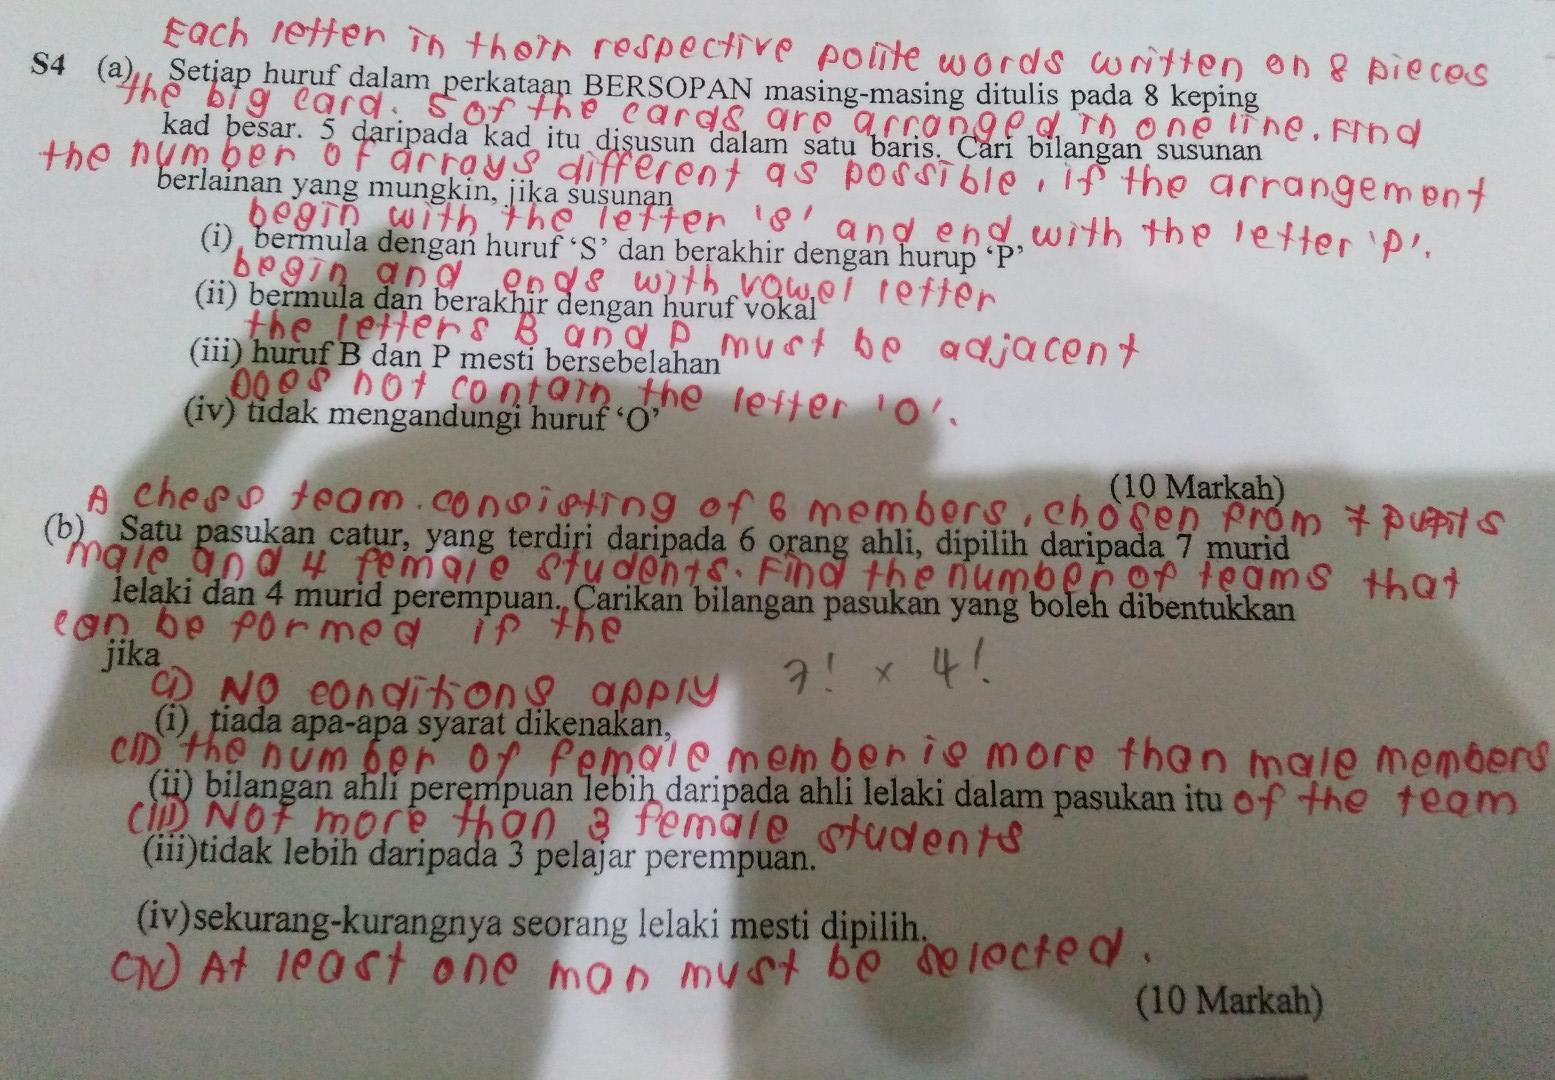 Each letter in their respective polite words written on 8 pieces
S4 (a) Setiap huruf dalam perkataan BERSOPAN masing-masing ditulis pada 8 keping
the big card. 5 of the cards are arranged in one line. Find
kad besar. 5 daripada kad itu disusun dalam satu baris. Cari bilangan susunan
the number of arrays different as possible, if the arrangement
berlainan yang mungkin, jika susunan
begin with the letter 's' and end with the letter 'p'.
(i) bermula dengan huruf ‘S’ dan berakhir dengan hurup ‘P’
begin and ends with vowel letter
(ii) bermula dan berakhir dengan huruf vokal
the letters B and P must be adjacent
(iii) huruf B dan P mesti bersebelahan
Does not contain the letter 'O'.
(iv) tidak mengandungi huruf ‘O’
(10 Markah)
A chess team. consisting of 6 members, chosen from 7 pupils
(b) Satu pasukan catur, yang terdiri daripada 6 orang ahli, dipilih daripada 7 murid
male and 4 female students. Find the number of teams that
lelaki dan 4 murid perempuan. Carikan bilangan pasukan yang boleh dibentukkan
can be formed if the
jika
7! x 4!
(i) No conditions apply
(i) tiada apa-apa syarat dikenakan,
(ii) the number of female member is more than male members
(ii) bilangan ahli perempuan lebih daripada ahli lelaki dalam pasukan itu of the team
(iii) Not more than 3 female students
(iii)tidak lebih daripada 3 pelajar perempuan.
(iv)sekurang-kurangnya seorang lelaki mesti dipilih.
(iv) At least one man must be selected.
(10 Markah)